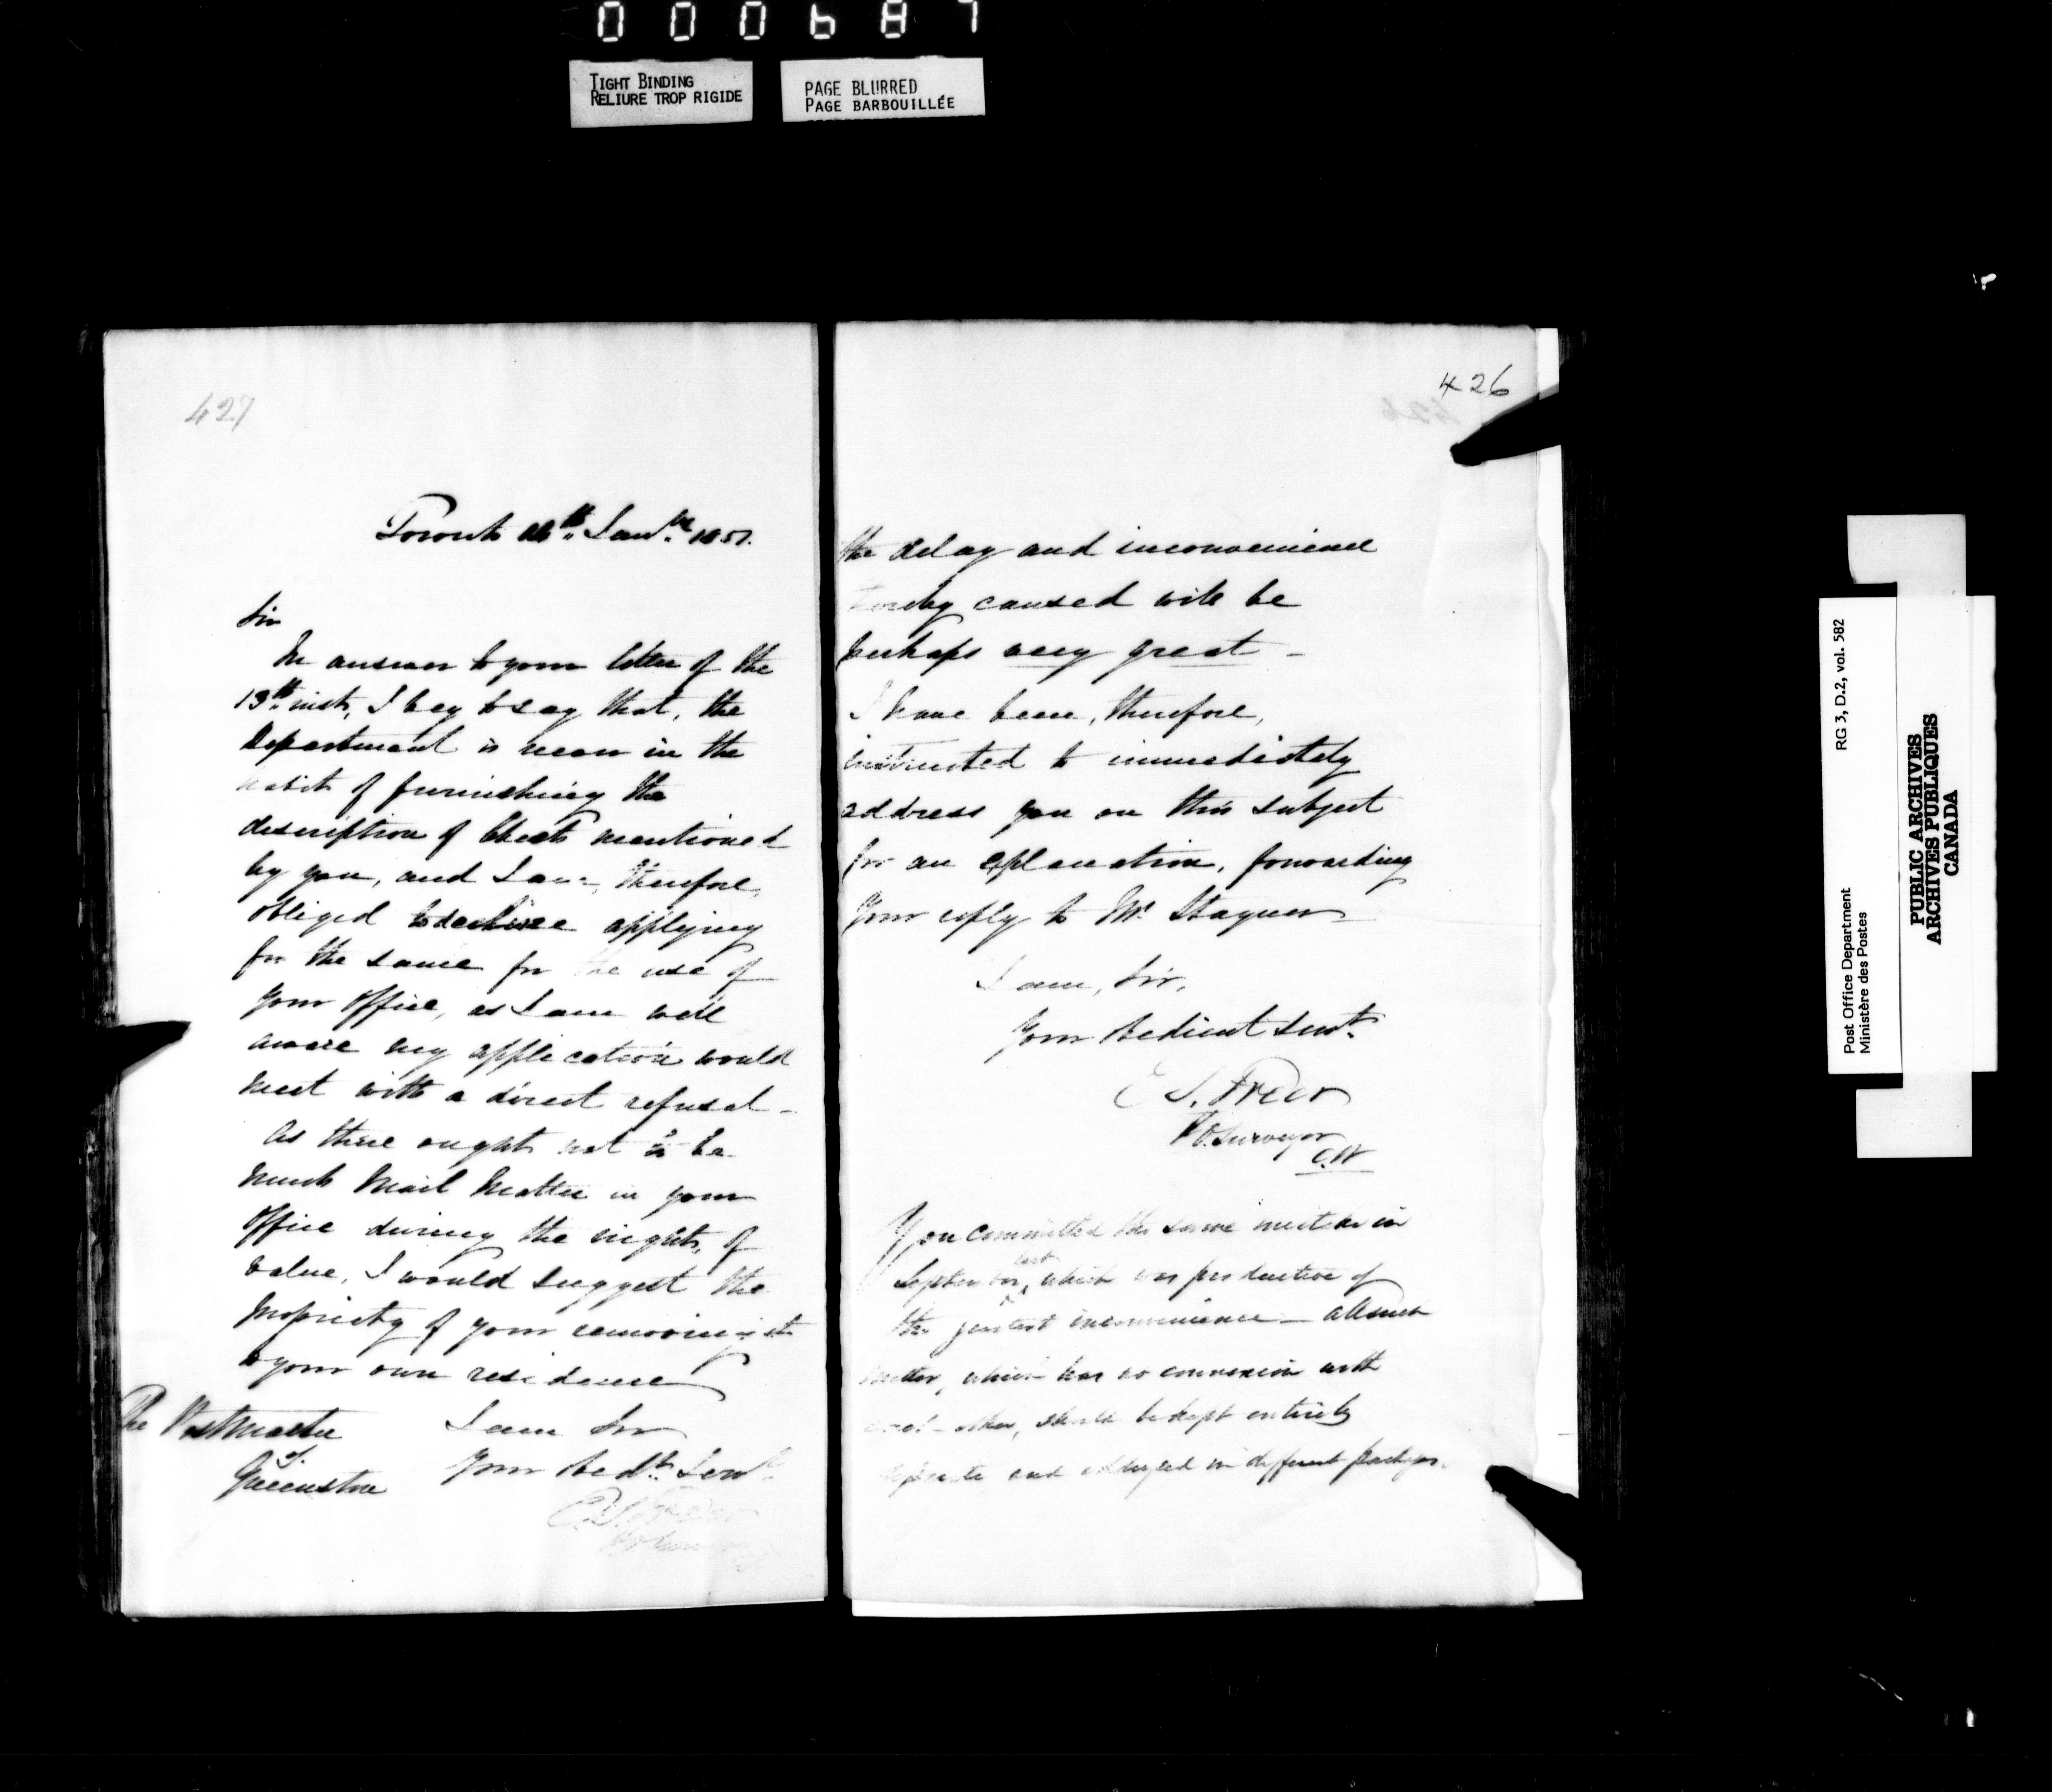 000687
TIGHT BINDING
RELIURE TROP RIGIDE
PAGE BLURRED
PAGE BARBOUILLÉE
427
Toronto Jany 1851.
Sir
In answer to your letter of the
13th inst, I beg to say that, the
Department is never in the
habit of furnishing the
description of Chests mentioned
by you, and I am, therefore,
obliged to decline applying
for the same for the use of
your office, as I am well
aware my application would
meet with a direct refusal -
As there ought not to be
much Mail Matter in your
office during the night, of
value, I would suggest the
propriety of your removing it
to your own residence
I am Sir
Your Obedt. Servt.
The Postmaster
of
Queenston
426
the delay and inconvenience
thereby caused will be
perhaps very great -
I have been, therefore,
instructed to immediately
address you on this subject
for an explanation, forwarding
your reply to Mr. Stayner
I am, Sir,
Your Obedient Servt.
E S. Freer
P O. Surveyor
C.W
You committed the same mistake in
September last, which was productive of
the greatest inconvenience -
matter, which has no connexion with
each other, should be kept entirely
separate and in different packages.
RG 3, D.2, vol. 582
Post Office Department
Ministère des Postes
PUBLIC ARCHIVES
ARCHIVES PUBLIQUES
CANADA